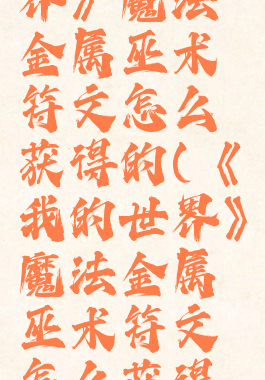 界》魔法
金属巫术
符文怎么
获得的(《
我的世界》
魔法金属
巫术符文
怎么获得